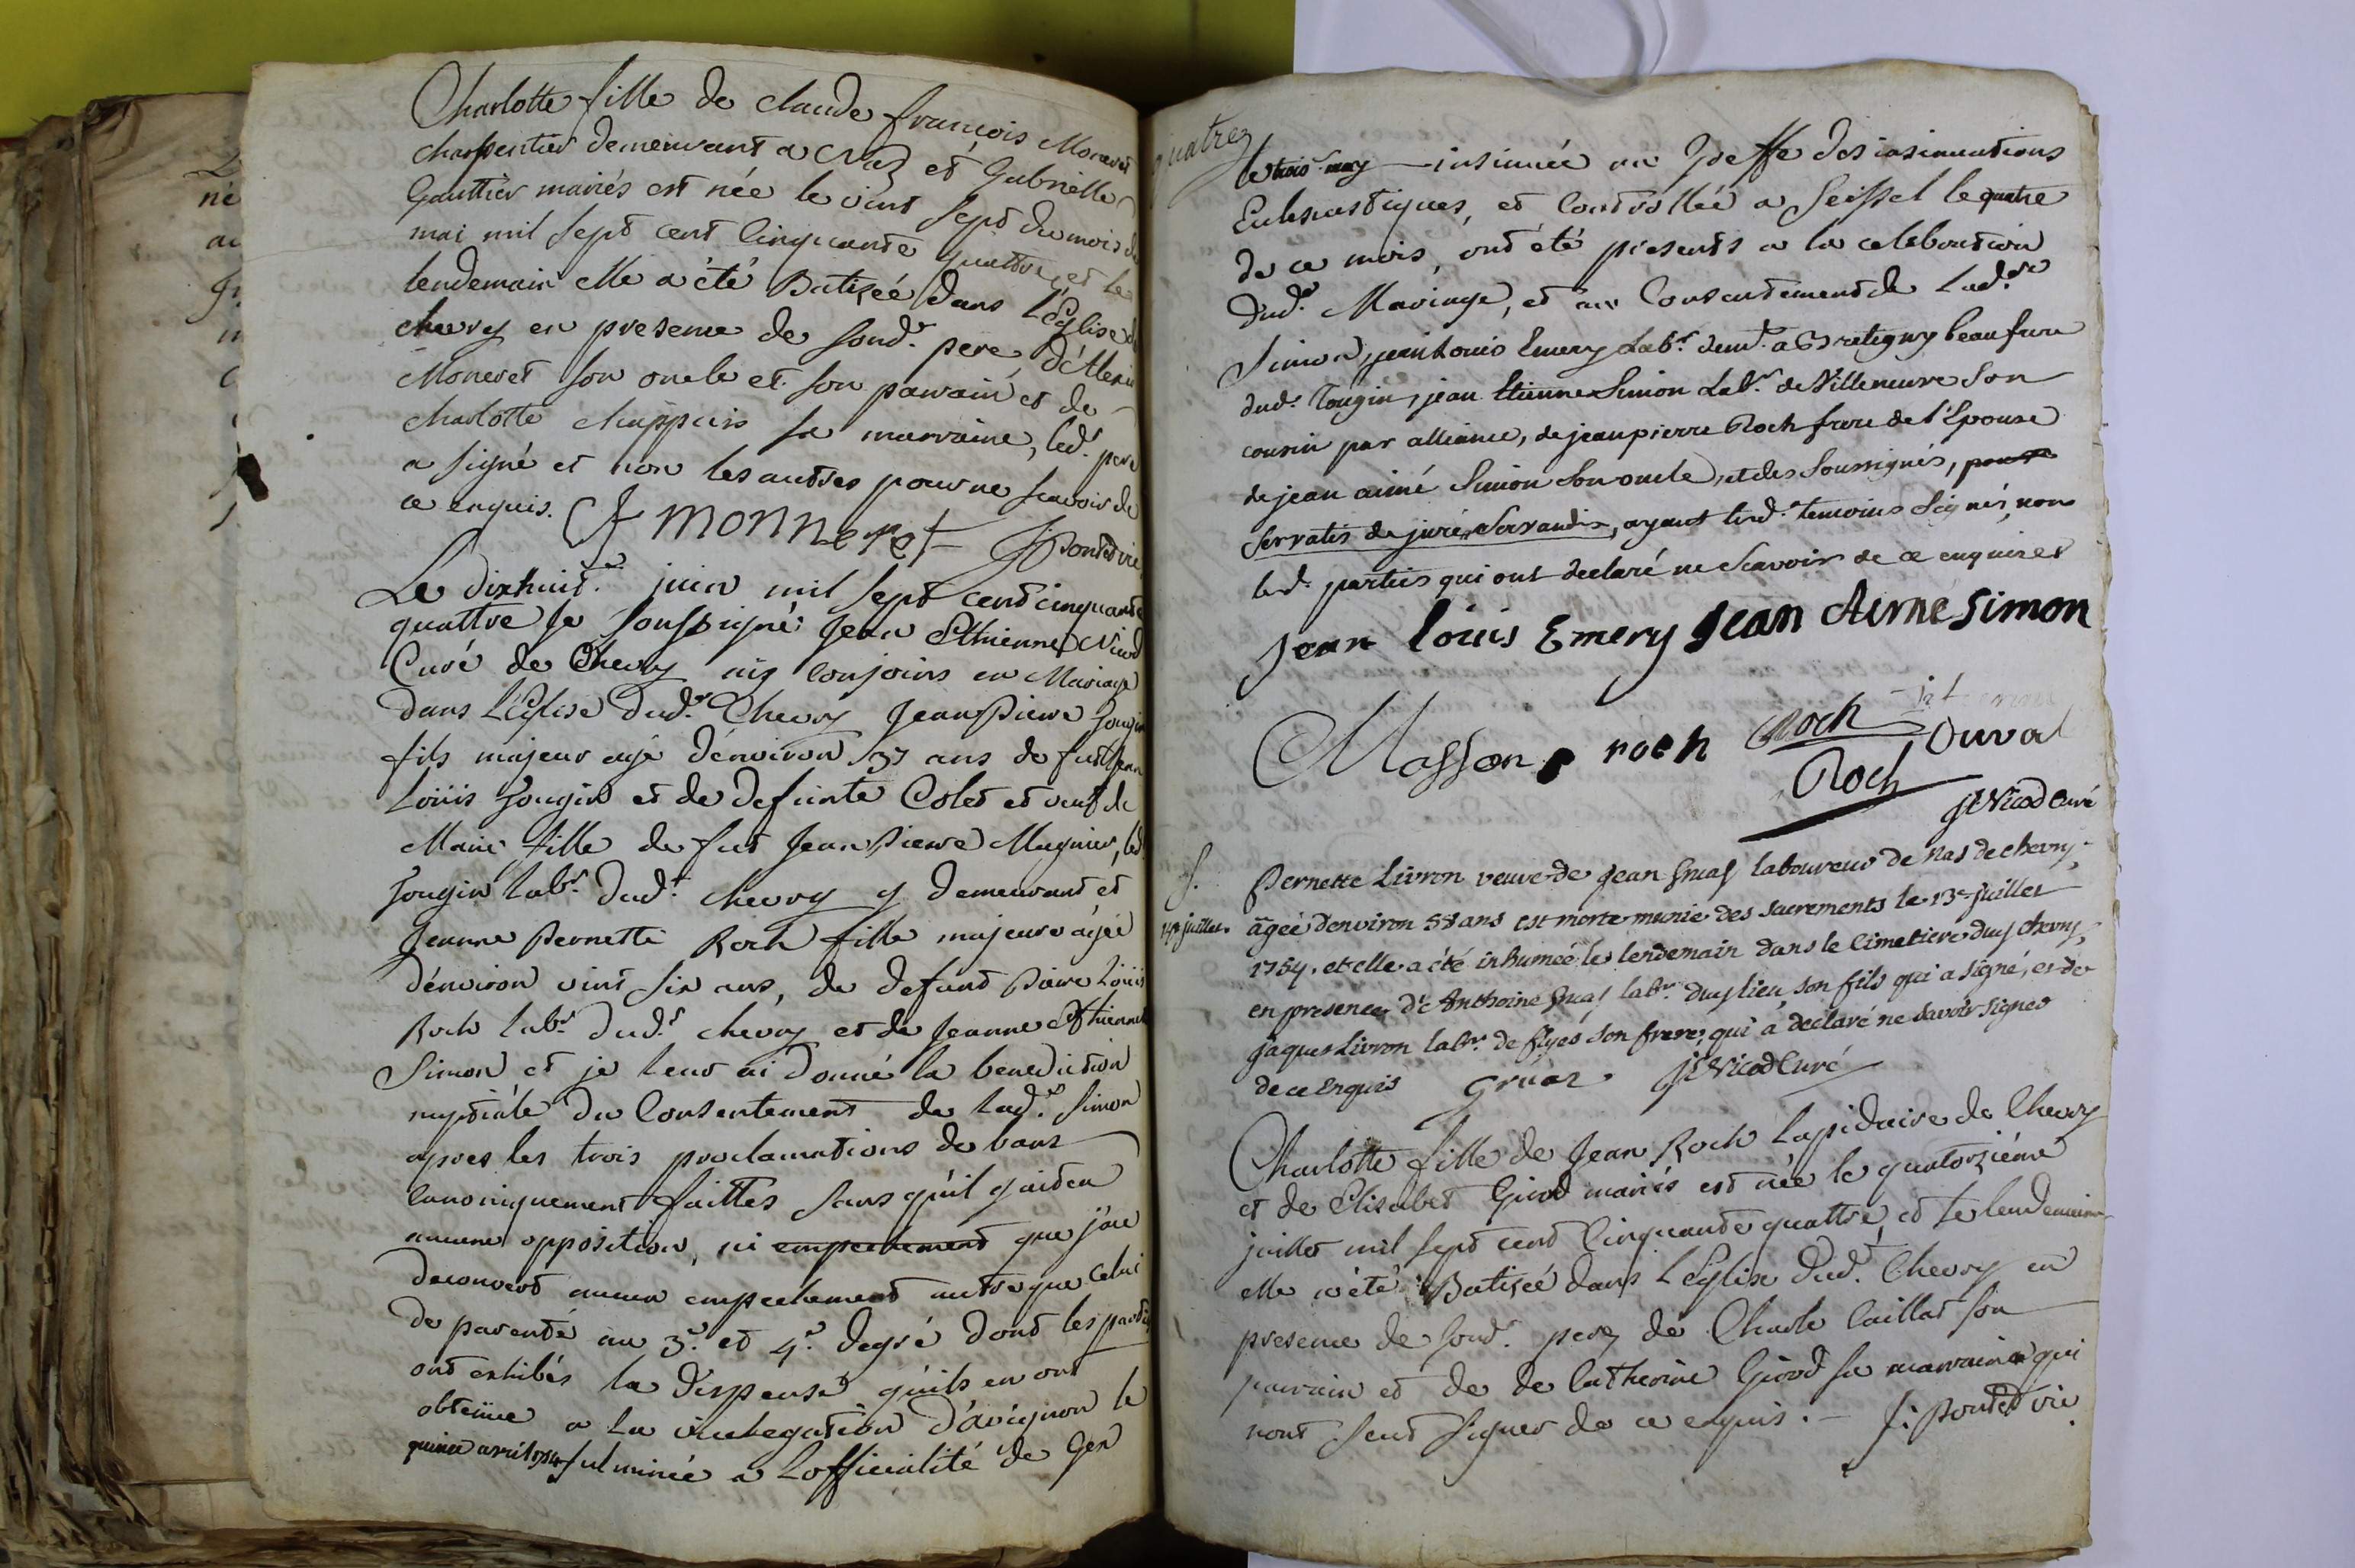 Charlotte fille de claude francois Moneret
charpentier demeurant a Naz et Gabrielle
Gauttier mariés est née le vint sept du mois de
mai mil sept cent cinquante quattre et le
lendemain elle a été Batizée dans l'Eglise de
chevry en presence de sond.t pere, d'
Moneret son oncle et son parrain et de
charlotte chappuis sa marraine, led.t pere
a signé et non les autres pour ne scavoir de
ce enquis. Cf monneret Pontet vic.
Le dixhuit.e juin mil sept cent cinquante
quattre je soussigné Jean Ethienne Nicod
Curé de Chevry aiy conjoins en Mariage
dans L'Eglise dud.t Chevry Jean Pierre Gougin
fils majeur agé d'environ 37 ans de fut Jean
Loüis Gougin et de defunte Colet et veuf de
Marie fille de fut Jean Pierre Magnier, led.
Gougin lab.r dud.t chevry y demeurant et
Jeanne Pernette Roch fille majeure agée
d'environ vint six ans, de defunt Pierre Loüis
Roch lab.r dud.t chevry et de Jeanne Ethiennette
Simon et je leur ai donné la benediction
nuptiale du Consentement de lad.e Simon
apres les trois proclamations de bans
canoniquement faittes sans qu'il y ait eu
aucune opposition, ni empechement que j'aie
decouvert aucun empechement autre que celui
de parenté au 3.e et 4.e degré dont les parties
ont exhibés la dispense qu'ils en ont
obtenüe a la vicelegation d'avignon le
quinze avril 1754 fulminée a L'officialité de Gex
quatre
le trois may insinuée au Greffe des insinuations
Eclesiastiques, et controllée a Seissel le quatre
de ce mois, ont été presents a la celebration
dud.t Mariage, et au Consentement de Lad.e
Simon, jean Louis Emery Lab.r dem.t a Bretigny beaufrere
dud.t Gougin, jean Etienne Simon Lab.r de Villeneuve son
cousin par alliance, de jean pierre Roch frere de l'Epouse
de jean aimé Simon son oncle, et des soussignés,
servatis de jure servandis, ayant lesd.t temoins signés, non
lesd. parties qui ont declaré ne scavoir de ce enquises
Jean louis Emery Jean Aimé Simon
Masson roch Roch Duval
Roch
JE Nicod Curé
S.
14 juillet.
Pernette Livron veuve de jean Gruaz laboureur de Naz de chevry,
âgée d'environ 58 ans est morte munie des sacrements le 13e juillet
1754. et elle a été inhumée le lendemain dans le Cimetiere duy chevry,
en presence d'Anthoine Gruaz lab.r duy lieu, son fils qui a signé, et de
jaques Livron lab.r de flyes son frere, qui a declaré ne savoir signer
de ce Enquis Gruaz. JE Nicod Curé
Charlotte fille de Jean Roch Lapidaire de Chevry
et de Elisabet Girod mariés est née le quatorziéme
juillet mil sept cent Cinquante quattre, et le lendemain
elle a été Batizée dans L'Eglise dud.t Chevry en
presence de sond.t pere, de Charle Caillat son
parrain et de de Catherine Girod sa marraine qui
n'ont seut signer de ce enquis. — f: Pontet vic